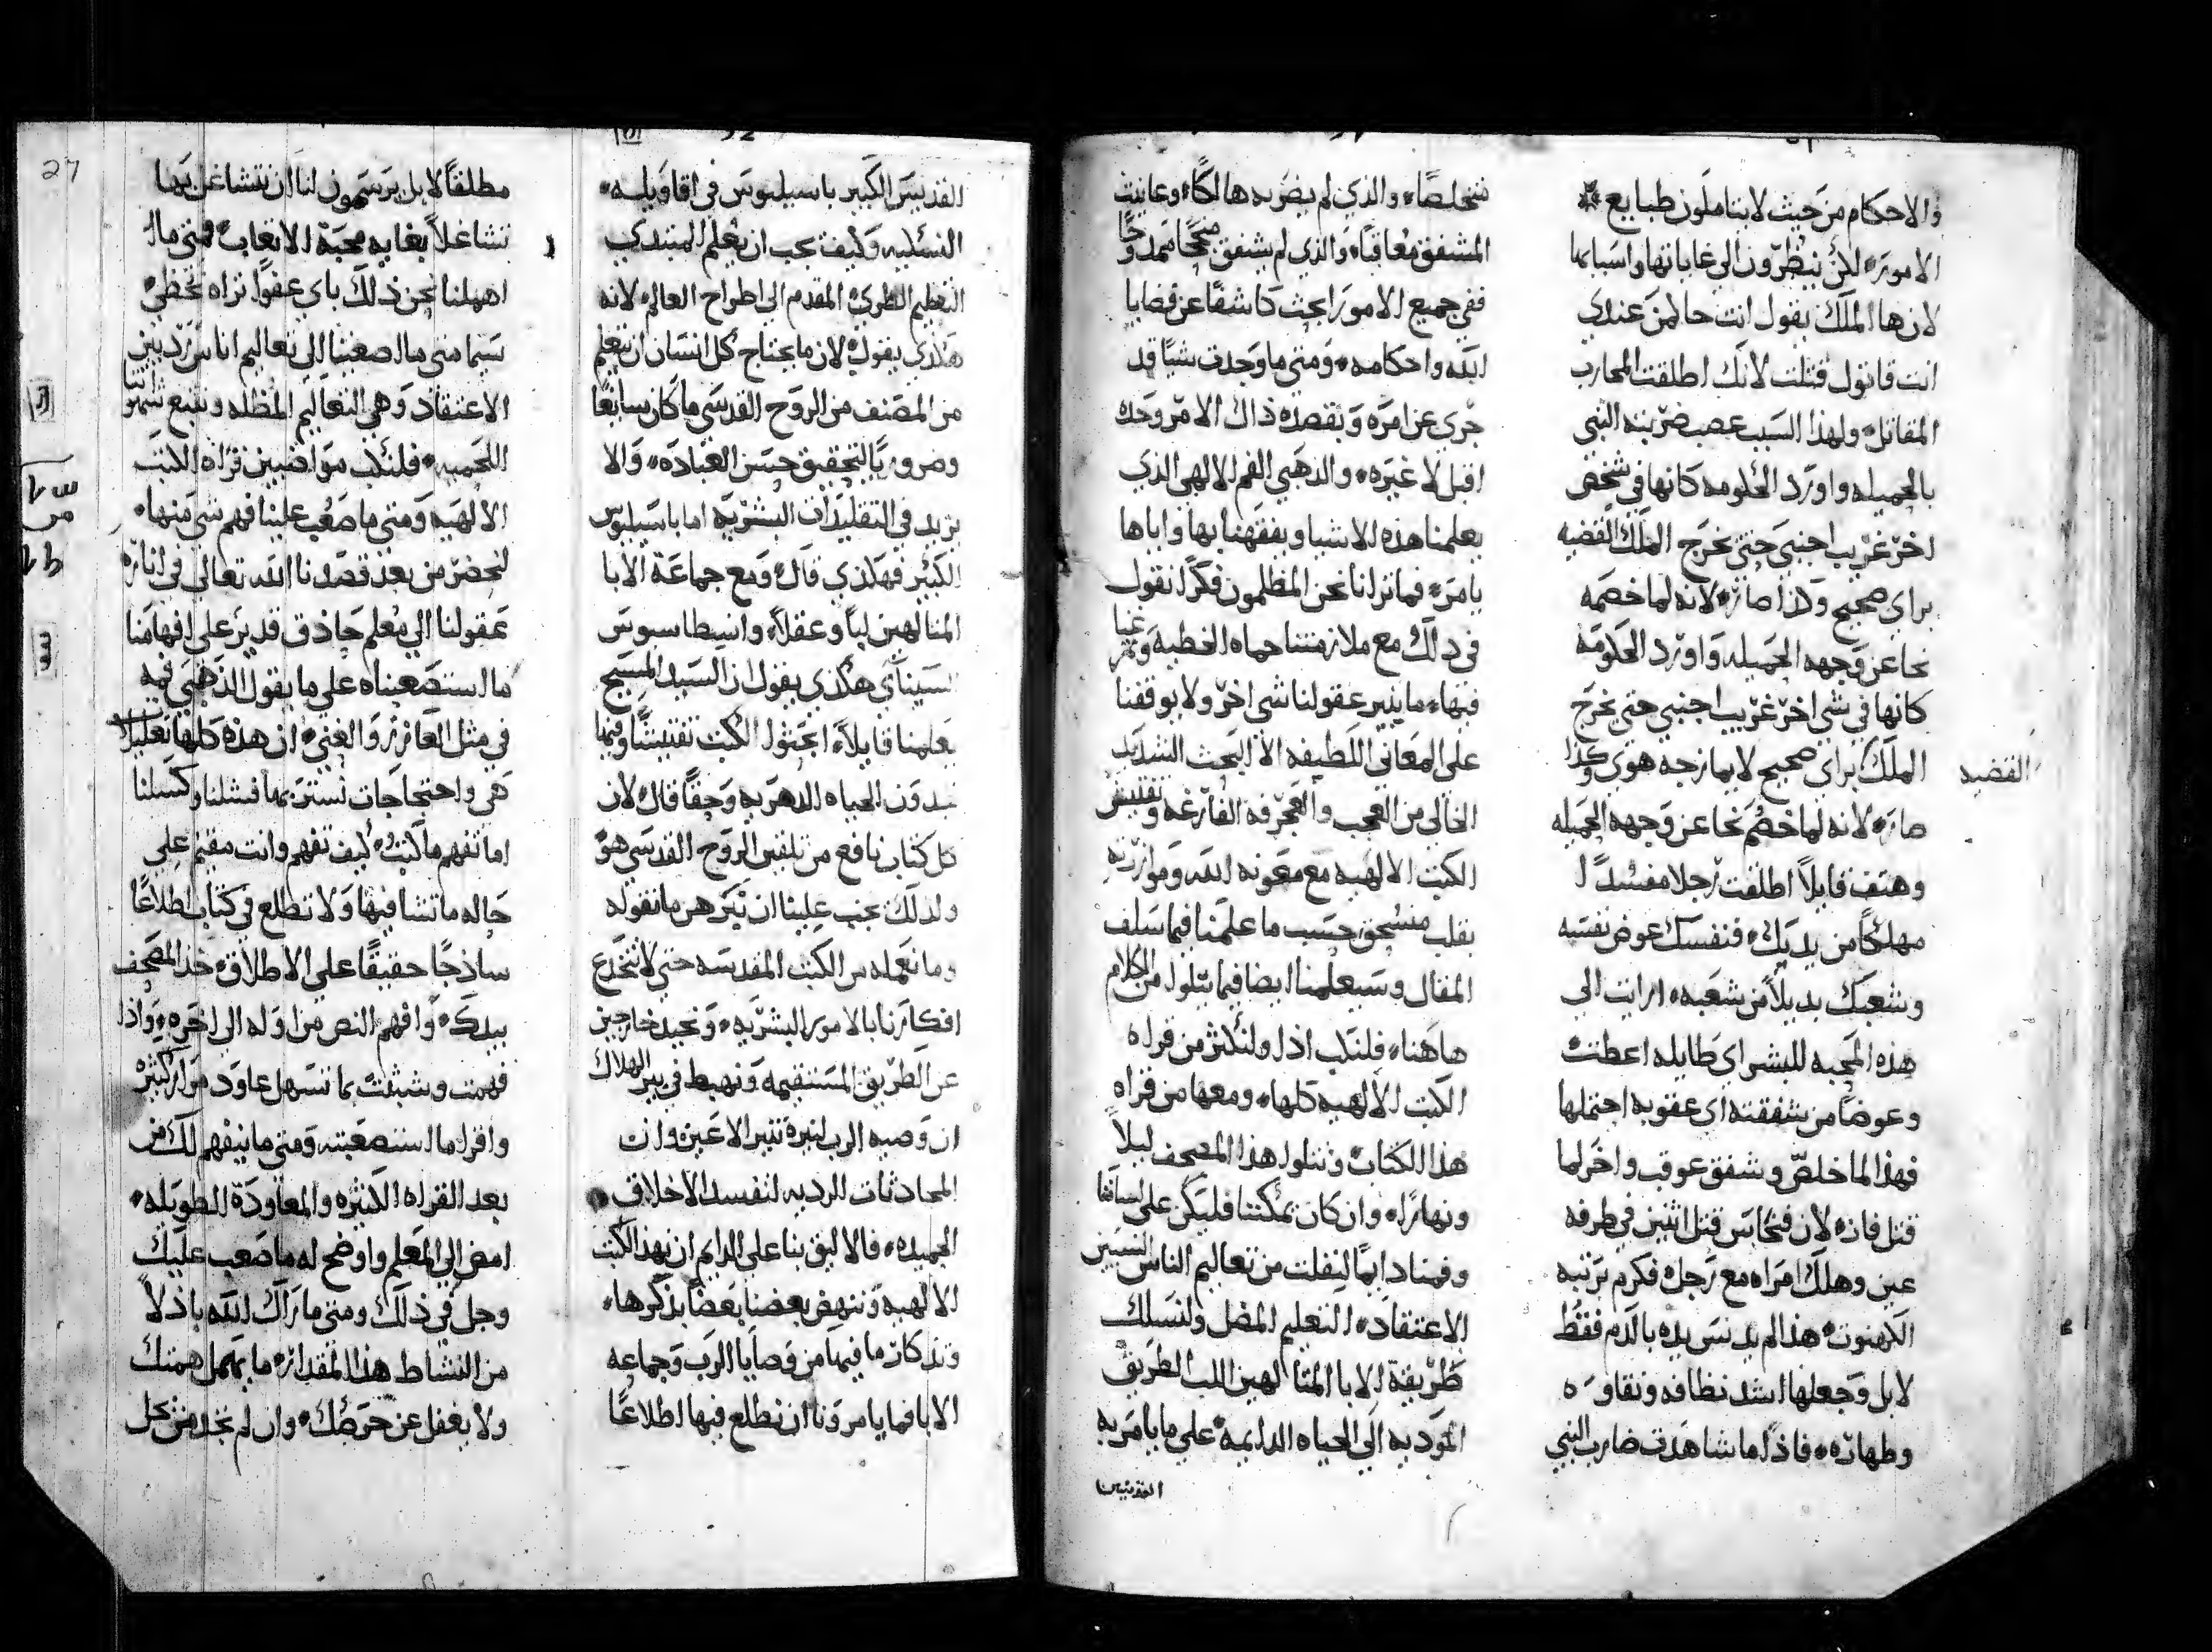 والاحكام من حيث لا يتاملون طبايع
الامور لكن ينظرون الي غاياتها واسبابها
لان ها الملك يقول انت حال من عندي
انت قاتول قتلت لانك اطلقت المحارب
المقاتل ولهذا السبب عصب ضربته النبي
بالجميله واورد الحلومه كانها في شخص
اخر غريب اجنبي حتي يخرج الملك القضيه
براي صحيح وكذا صار لانه لما خصمه
نحا عن وجهه الجميله واورد الحلومه
كانها في شي اخر غريب اجنبي حتي يخرج
الملك براي صحيح لا يمازجه هوي وكذا
القضيه
صار لانه لما خصم نحا عن وجهه الجميله
وهتف قايلاً اطلقت رجلا مفسدًا
مهلكًا من يديك فنفسك عوض نفسه
وشعبك بديلاً من شعبه ارايت الي
هذه المحبه للبشر اي طايله اعطت
وعوضًا من شفقته اي عقوبه احتملها
فهذا لما خلص وشفق عوقب واخر لما
قتل فاز لان فنحاس قتل اثنين في طرفه
عين وهلك امراه مع رجل فكرم برتبه
الكهنوت هذا لم يدنس يده بالدم فقط
لابل وجعلها اشد نظافه ونقاوه
وطهاره فاذا ما شاهدت ضارب النبي
متخلصًا والذي لم يضربه هالكًا وعاينت
المشفق معاقبًا والذي لم يشفق ممدوحًا
ففي جميع الامور ابحث كاشفًا عن قضايا
الله واحكامه ومتي ما وجدت شيًا قد
جري عن امره وبقصده ذاك الامر وحده
اقبل لا غيره والذهبي الفم الالهي الذي
يعلمنا هذه الاشيا ويفقهنا بها واياها
يامر فما ترانا نحن المظلمون فكرًا نقول
في ذلك مع ملازمتنا حماه الخطيه وتمرغنا
فيها ما ينير عقولنا شي اخر ولا يوقفنا
علي المعاني اللطيفه الا البحث الشديد
الخالي من العجب والعجرفه الفارغه وتفتيش
الكتب الالهيه مع معونه الله وموازرته
بقلب منسحق حسب ما علمنا فيما سلف
المقال وسيعلمنا ايضا فيما يتلو من الكلام
هاهنا فلنكب اذا ولنكثر من قراه
الكتب الالهيه كلها ومعها من قراه
هذا الكتاب ونتلوا هذا المصحف ليلاً
ونهارًا وان كان يمكننا فليكن علي لساننا
وفمنا دايمًا لنفلت من تعاليم الناس النسيين
الاعتقاد التعليم المضل ولنسلك
طريقة الابا المتالهين اللب الطريق
المودبه الي الحياه الدايمه علي ما يامر به
القديس
القديس الكبير باسيليوس في اقاويله
النسكيه وكيف يجب ان يعلم المبتدي
التعليم الطري المقدم الي اطراح العالم لانه
هكذي يقول لان ما يحتاج كل انسان ان يتعلم
من المصنف من الروح القدسي ما كان سايغًا
وضروريًا لتحقيق حسن العباده والا
يزيد في التقليدات البشريه اما باسيليوس
الكبير فهكذي قال ومع جماعة الابا
المتالهين لبًا وعقلاً وانسطاسيوس
السيناي هكذي يقول ان السيد المسيح
يعلمنا قايلاً ابحثوا الكتب تفتيشًا وفيها
تجدون الحياه الدهريه وحقًا قال لان
كل كتاب نافع من تلقين الروح القدسي هو
ولذلك يجب علينا ان نبرهن ما نقوله
وما نعمله من الكتب المقدسه حتي لا تنخدع
افكارنا بالامور البشريه ونحيد خارجين
عن الطريق المستقيمه ونهبط في بير الهلاك
ان وصيه الرب لنيرة تنير الاعين وان
المحادثات الرديه لتفسد الاخلاق
الجميله فالاليق بنا علي الدايم ان نهذ الكتب
الالهيه وننهض بعضنا بعضًا بذكرها
وتذكار ما فيها من وصايا الرب وجماعه
الابا فما يامروننا ان نطلع فيها اطلاعًا
27
مطلقًا لابل يرسمون لنا ان نتشاغل بها
تشاغلاً بغايه محبة الاتعاب فمتي ما
اهملنا نحن ذلك باي عفوًا تراه نحظي
سيما متي ما اصغينا الي تعاليم اناس رديين
الاعتقاد وهي التعاليم المظله ونتبع شهواتنا
اللحميه فلنكب مواضبين قراه الكتب
الالهيه ومتي ما صعب علينا فهم شي منها
لنحضر من بعد قصدنا الله تعالي في اناره
عقولنا الي معلم حاذق قدير علي افهامنا
ما استصعبناه علي ما يقول الذهبي فمه
في مثل العازر والغني ان هذه كلها تعليلات
هي واحتجاجات نستر بها فشلنا وكسلنا
اما تفهم ما كتب كيف تفهم وانت مقيم علي
حاله ما تشا فيها ولا تطلع في كتاب اطلاعًا
ساذجًا حقيقًا علي الاطلاق خذ المصحف
بيدك وافهم النص من اوله الي اخره واذا
فهمت وشبثت بما تسهل عاود مرار كثيره
واقرا ما استصعبته ومتي ما ينفهم لك من
بعد القراه الكثيره والمعاودة الطويله
امض الي المعلم واوضح له ما صعب عليك
وجل في ذلك ومتي ما راك الله باذلاً
من النشاط هذا المقدار ما يهمل همتك
ولا يغفل عن حرصك وان لم تجد من يحل